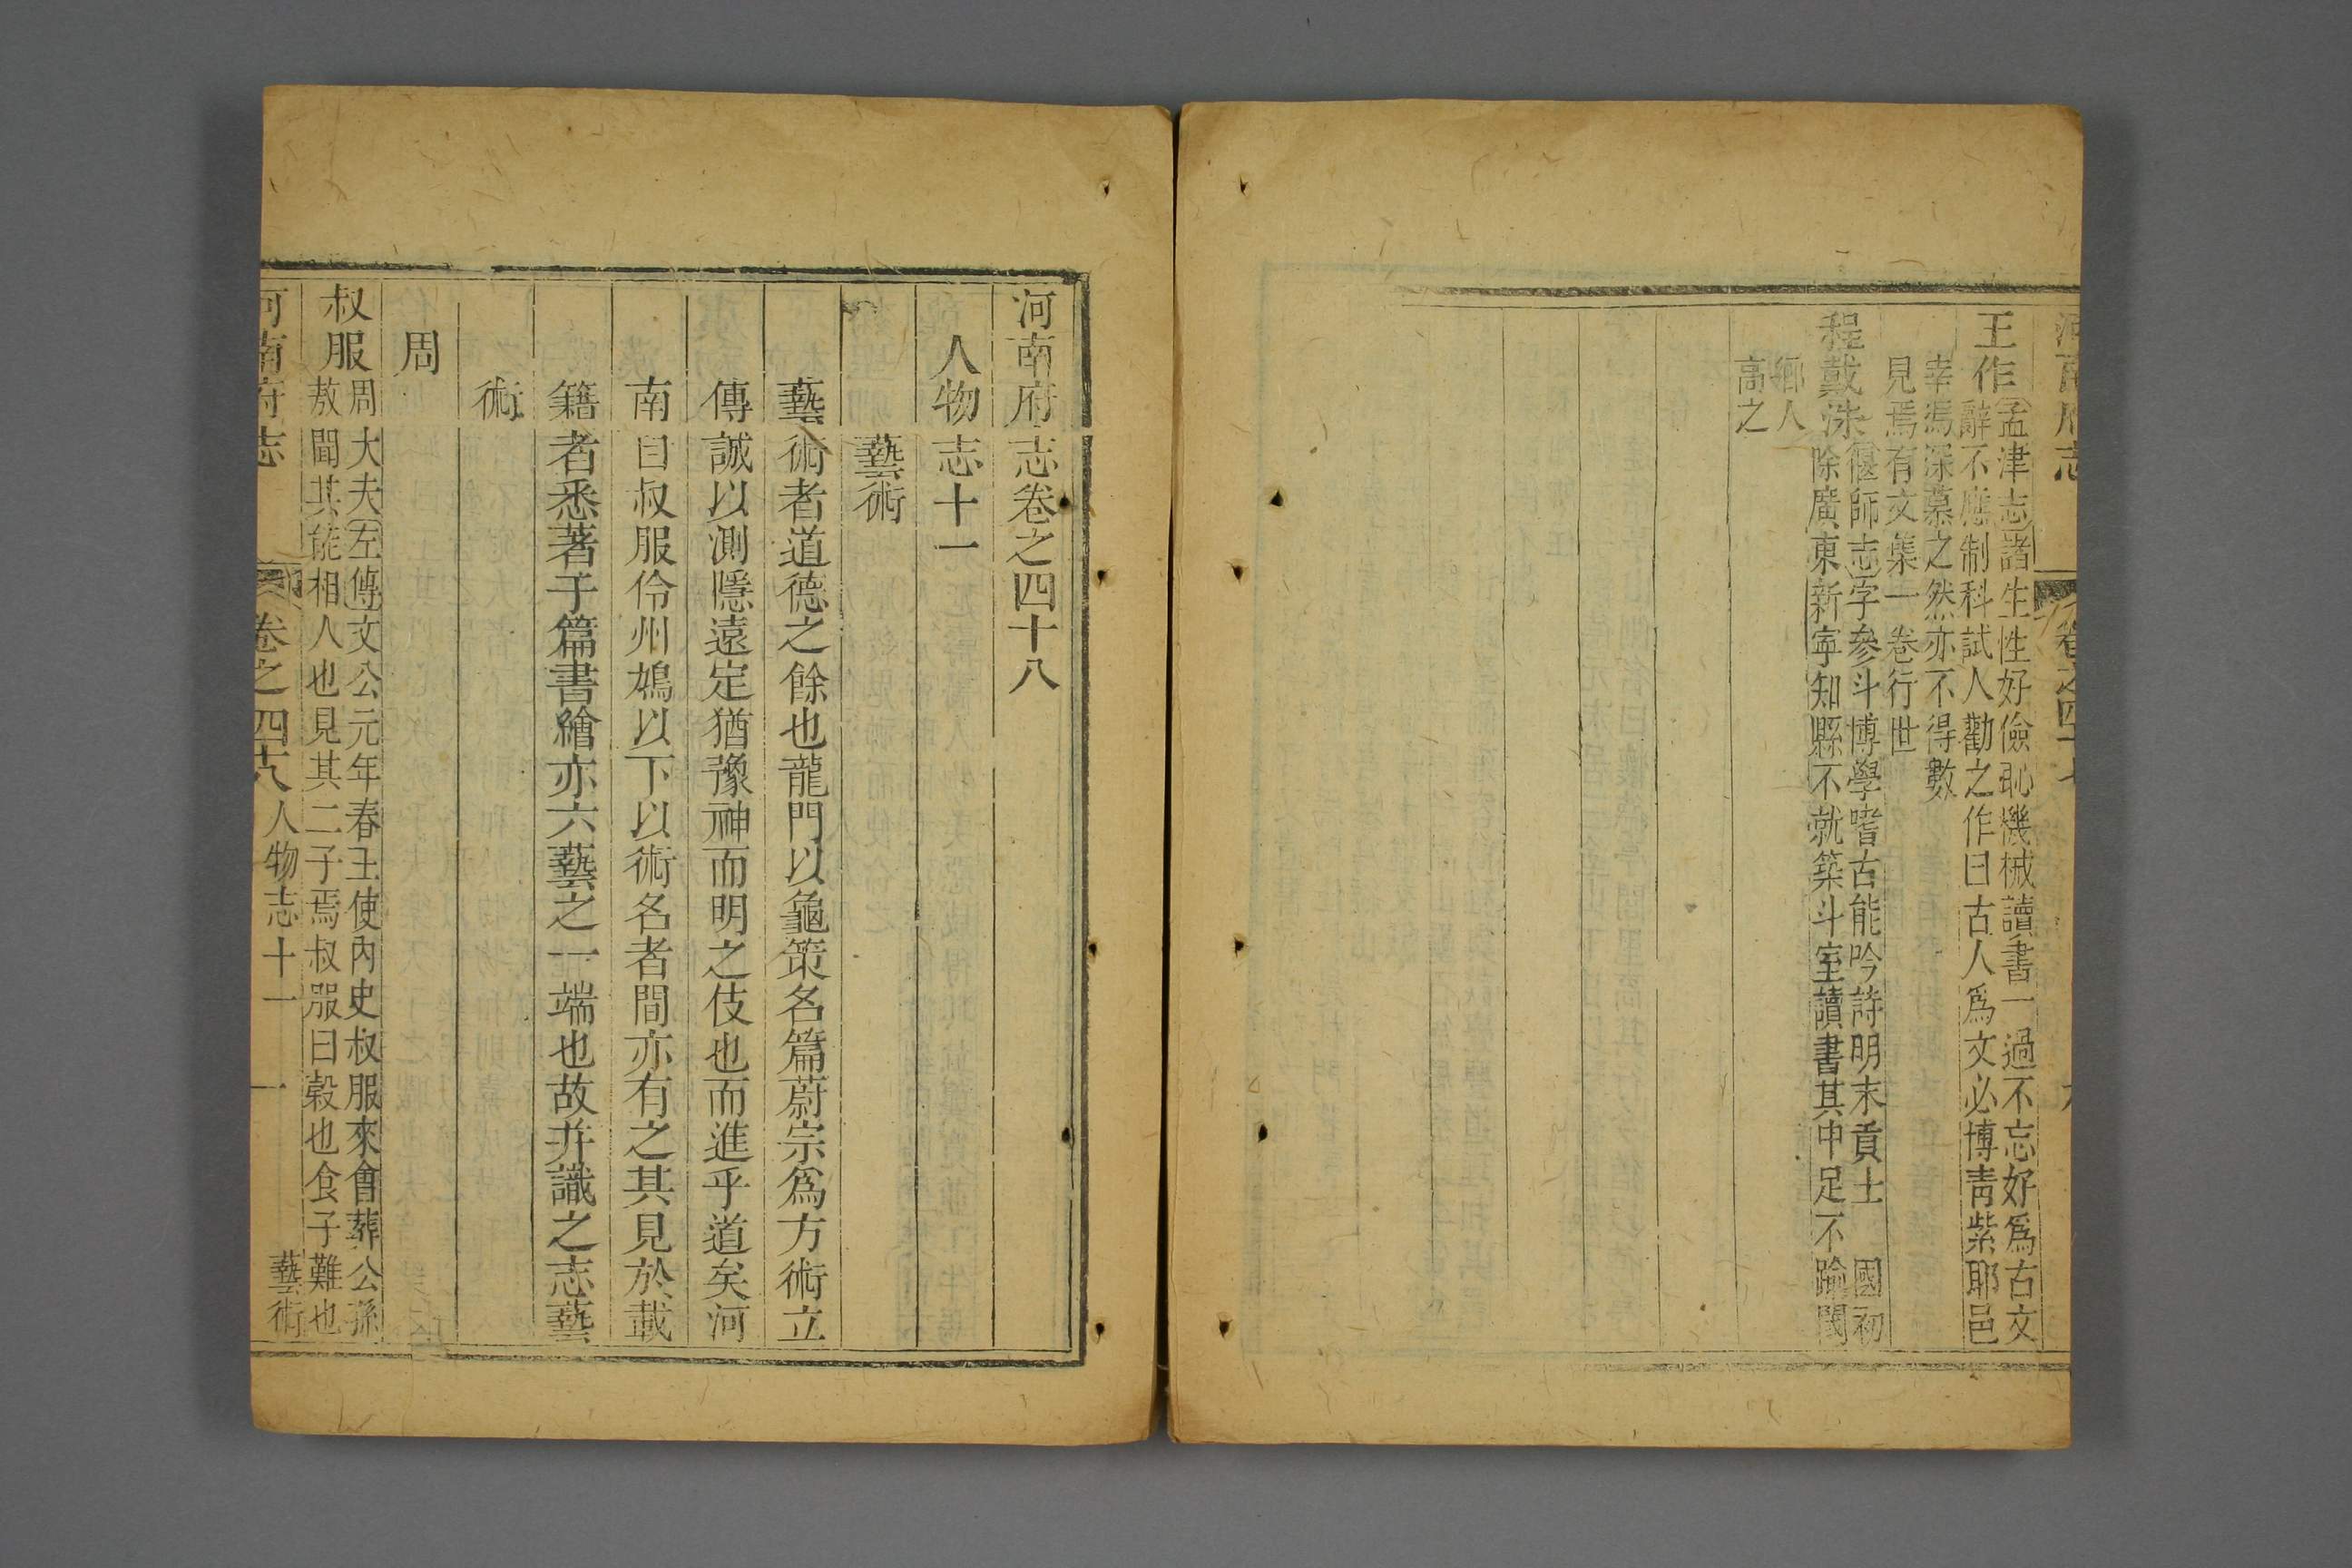 河南府志
卷之四十七
王作
孟津志諸生性好儉恥機械讀書一過不忘好爲古文
辭不應制科試人勸之作曰古人爲文必博靑紫耶邑
幸馮深慕之然亦不得數
見焉有文集一卷行世
程戴洙
偃師志字參斗博學嗜古能吟詩明末貢士 國初
除廣東新寧知縣不就築斗室讀書其中足不踰閾
鄉人
高之
河南府志卷之四十八
人物志十一
藝術
藝術者道德之餘也龍門以龜策名篇蔚宗爲方術立
傳誠以測隱遠定猶豫神而明之伎也而進乎道矣河
南自叔服伶州鳩以下以術名者間亦有之其見於載
籍者悉著于篇書繪亦六藝之一端也故并識之志藝
術
周
叔服
周大夫左傳文公元年春王使內史叔服來會葬公孫
敖聞其能相人也見其二子焉叔服曰穀也食子難也
河南府志
卷之四十八 人物志十一 一 藝術